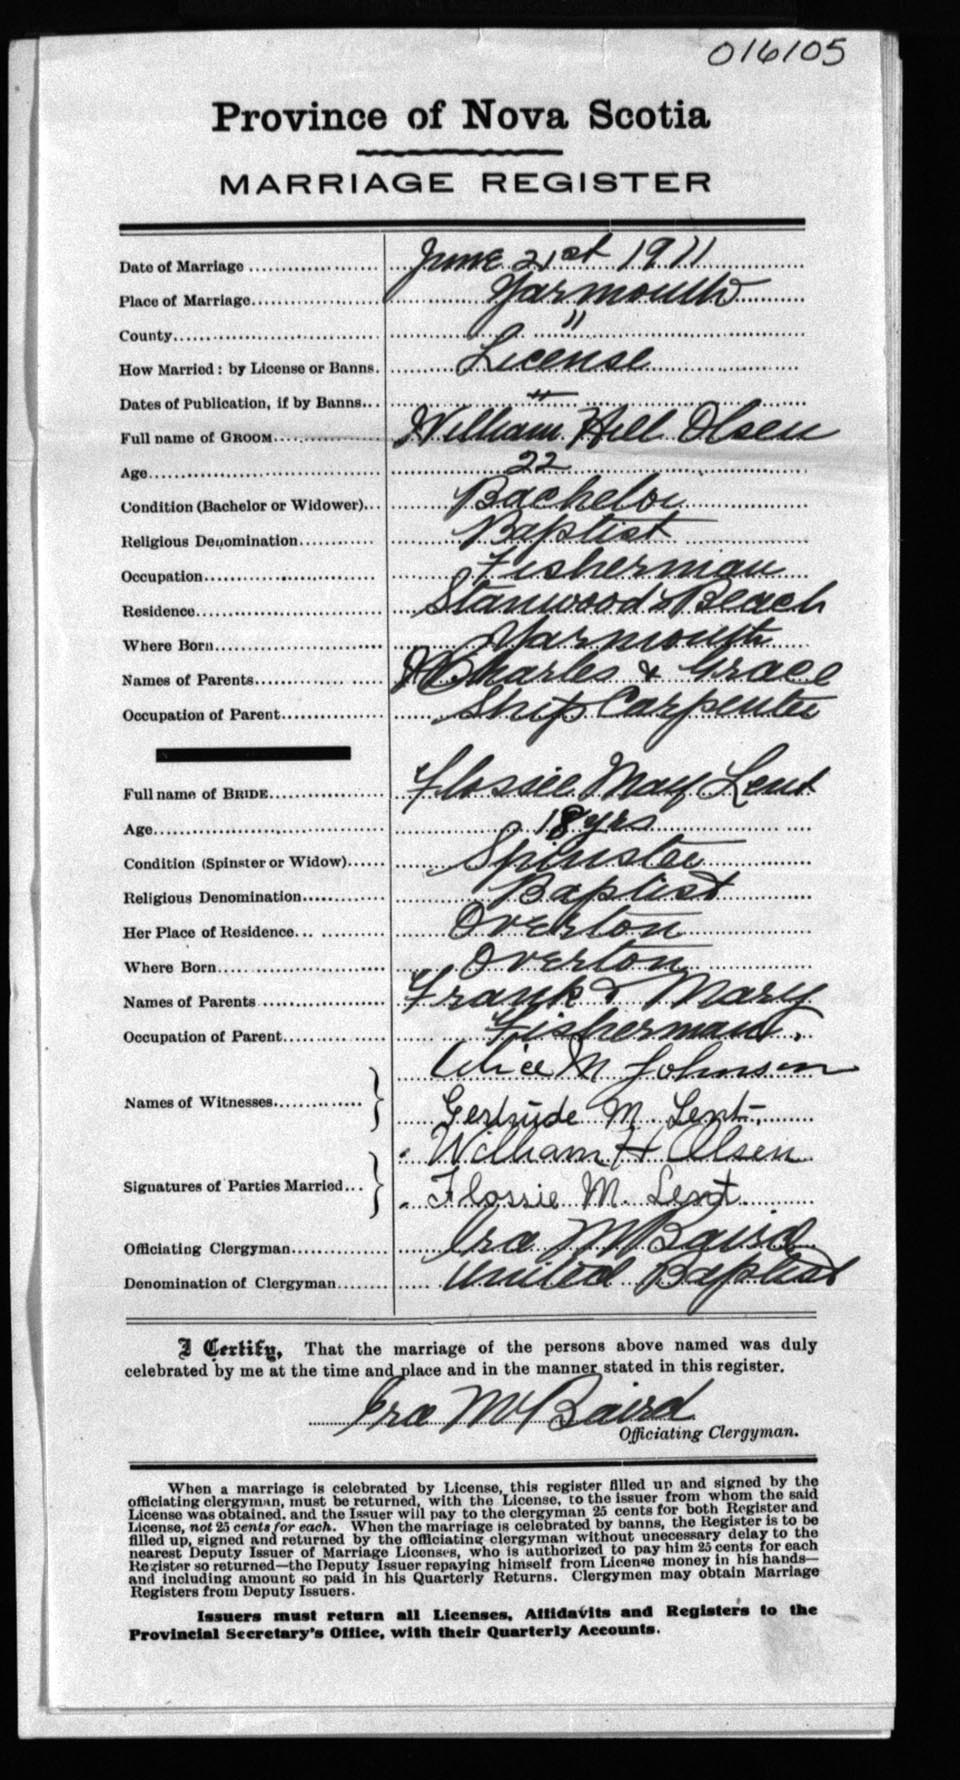 016105
Province of Nova Scotia
MARRIAGE REGISTER
Date of Marriage June 21st 1911
Place of Marriage Yarmouth
County "
How Married: by License or Banns. License
Dates of Publication, if by Banns "
Full name of GROOM William Hill Olsen
Age 22
Condition (Bachelor or Widower) Bachelor
Religious Denomination Baptist
Occupation Fisherman
Residence Stanwoods Beach
Where Born Yarmouth
Names of Parents Charles & Grace
Occupation of Parent Ship Carpenter
Full name of BRIDE Flossie May Lent
Age 18 yrs
Condition (Spinster or Widow) Spinster
Religious Denomination Baptist
Her Place of Residence Overton
Where Born Overton
Names of Parents Frank & Mary
Occupation of Parent Fisherman
Names of Witnesses Alice M Johnson
Gertrude M. Lent
Signatures of Parties Married William H Olsen
Flossie M. Lent
Officiating Clergyman Ira M Baird
Denomination of Clergyman United Baptist
I Certify, That the marriage of the persons above named was duly
celebrated by me at the time and place and in the manner stated in this register.
Ira M Baird
Officiating Clergyman.
When a marriage is celebrated by License, this register filled up and signed by the
officiating clergyman, must be returned, with the License, to the issuer from whom the said
License was obtained, and the Issuer will pay to the clergyman 25 cents for both Register and
License, not 25 cents for each. When the marriage is celebrated by banns, the Register is to be
filled up, signed and returned by the officiating clergyman without unecessary delay to the
nearest Deputy Issuer of Marriage Licenses, who is authorized to pay him 25 cents for each
Register so returned—the Deputy Issuer repaying himself from License money in his hands—
and including amount so paid in his Quarterly Returns. Clergymen may obtain Marriage
Registers from Deputy Issuers.
Issuers must return all Licenses, Affidavits and Registers to the
Provincial Secretary's Office, with their Quarterly Accounts.